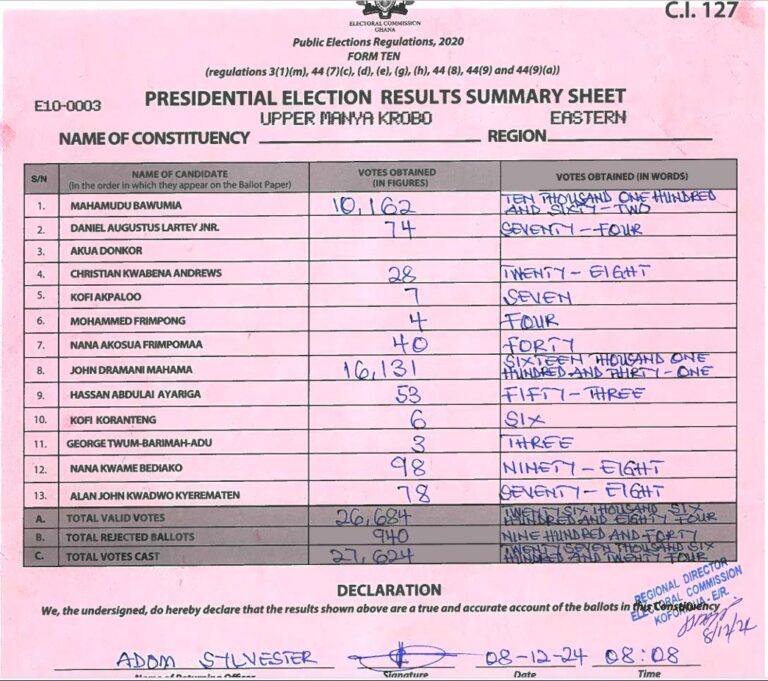 C.I. 127
ELECTORAL COMMISSION
GHANA
Public Elections Regulations, 2020
FORM TEN
(regulations 3(1)(m), 44 (7)(c), (d), (e), (g), (h), 44 (8), 44(9) and 44(9)(a))
E10-0003
PRESIDENTIAL ELECTION RESULTS SUMMARY SHEET
NAME OF CONSTITUENCY UPPER MANYA KROBO REGION EASTERN
S/N NAME OF CANDIDATE (In the order in which they appear on the Ballot Paper) VOTES OBTAINED (IN FIGURES) VOTES OBTAINED (IN WORDS)
1. MAHAMUDU BAWUMIA 10,162 TEN THOUSAND ONE HUNDRED AND SIXTY-TWO
2. DANIEL AUGUSTUS LARTEY JNR. 74 SEVENTY-FOUR
3. AKUA DONKOR
4. CHRISTIAN KWABENA ANDREWS 28 TWENTY-EIGHT
5. KOFI AKPALOO 7 SEVEN
6. MOHAMMED FRIMPONG 4 FOUR
7. NANA AKOSUA FRIMPOMAA 40 FORTY
8. JOHN DRAMANI MAHAMA 16,131 SIXTEEN THOUSAND ONE HUNDRED AND THIRTY-ONE
9. HASSAN ABDULAI AYARIGA 53 FIFTY-THREE
10. KOFI KORANTENG 6 SIX
11. GEORGE TWUM-BARIMAH-ADU 3 THREE
12. NANA KWAME BEDIAKO 98 NINETY-EIGHT
13. ALAN JOHN KWADWO KYEREMATEN 78 SEVENTY-EIGHT
A. TOTAL VALID VOTES 26,684 TWENTY SIX THOUSAND SIX HUNDRED AND EIGHTY FOUR
B. TOTAL REJECTED BALLOTS 940 NINE HUNDRED AND FORTY
C. TOTAL VOTES CAST 27,624 TWENTY SEVEN THOUSAND SIX HUNDRED AND TWENTY FOUR
DECLARATION
We, the undersigned, do hereby declare that the results shown above are a true and accurate account of the ballots in this Constituency
REGIONAL DIRECTOR
ELECTORAL COMMISSION
KOFORIDUA - E/R.
ADOM SYLVESTER 08-12-24 08:08
Name of Returning Officer Signature Date Time